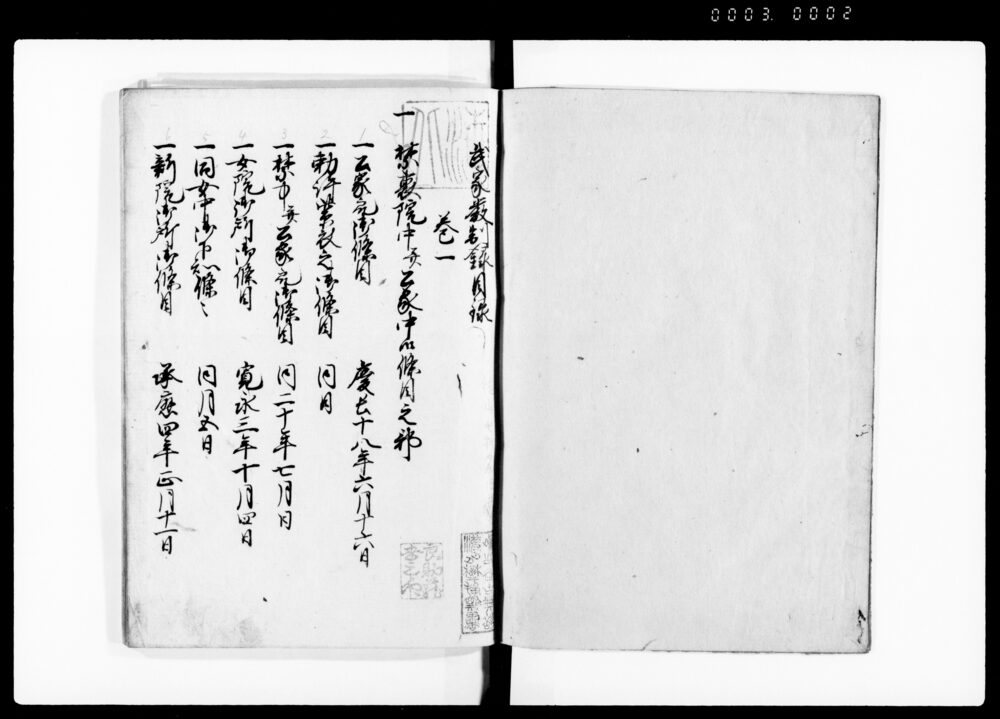 0003. 0002
武家嚴制録目録
巻一
一 禁裏院中并公家中御條目之部
1 一 公家宛御條目 慶長十八年六月十六日
2 一 勅許紫衣之御條目 同日
3 一 禁中并公家宛御條目 同二十年七月日
4 一 女院御所御條目 寛永三年十月四日
5 一 同女中御下知條々 同月五日
6 一 新院御所御條目 承應四年正月十一日